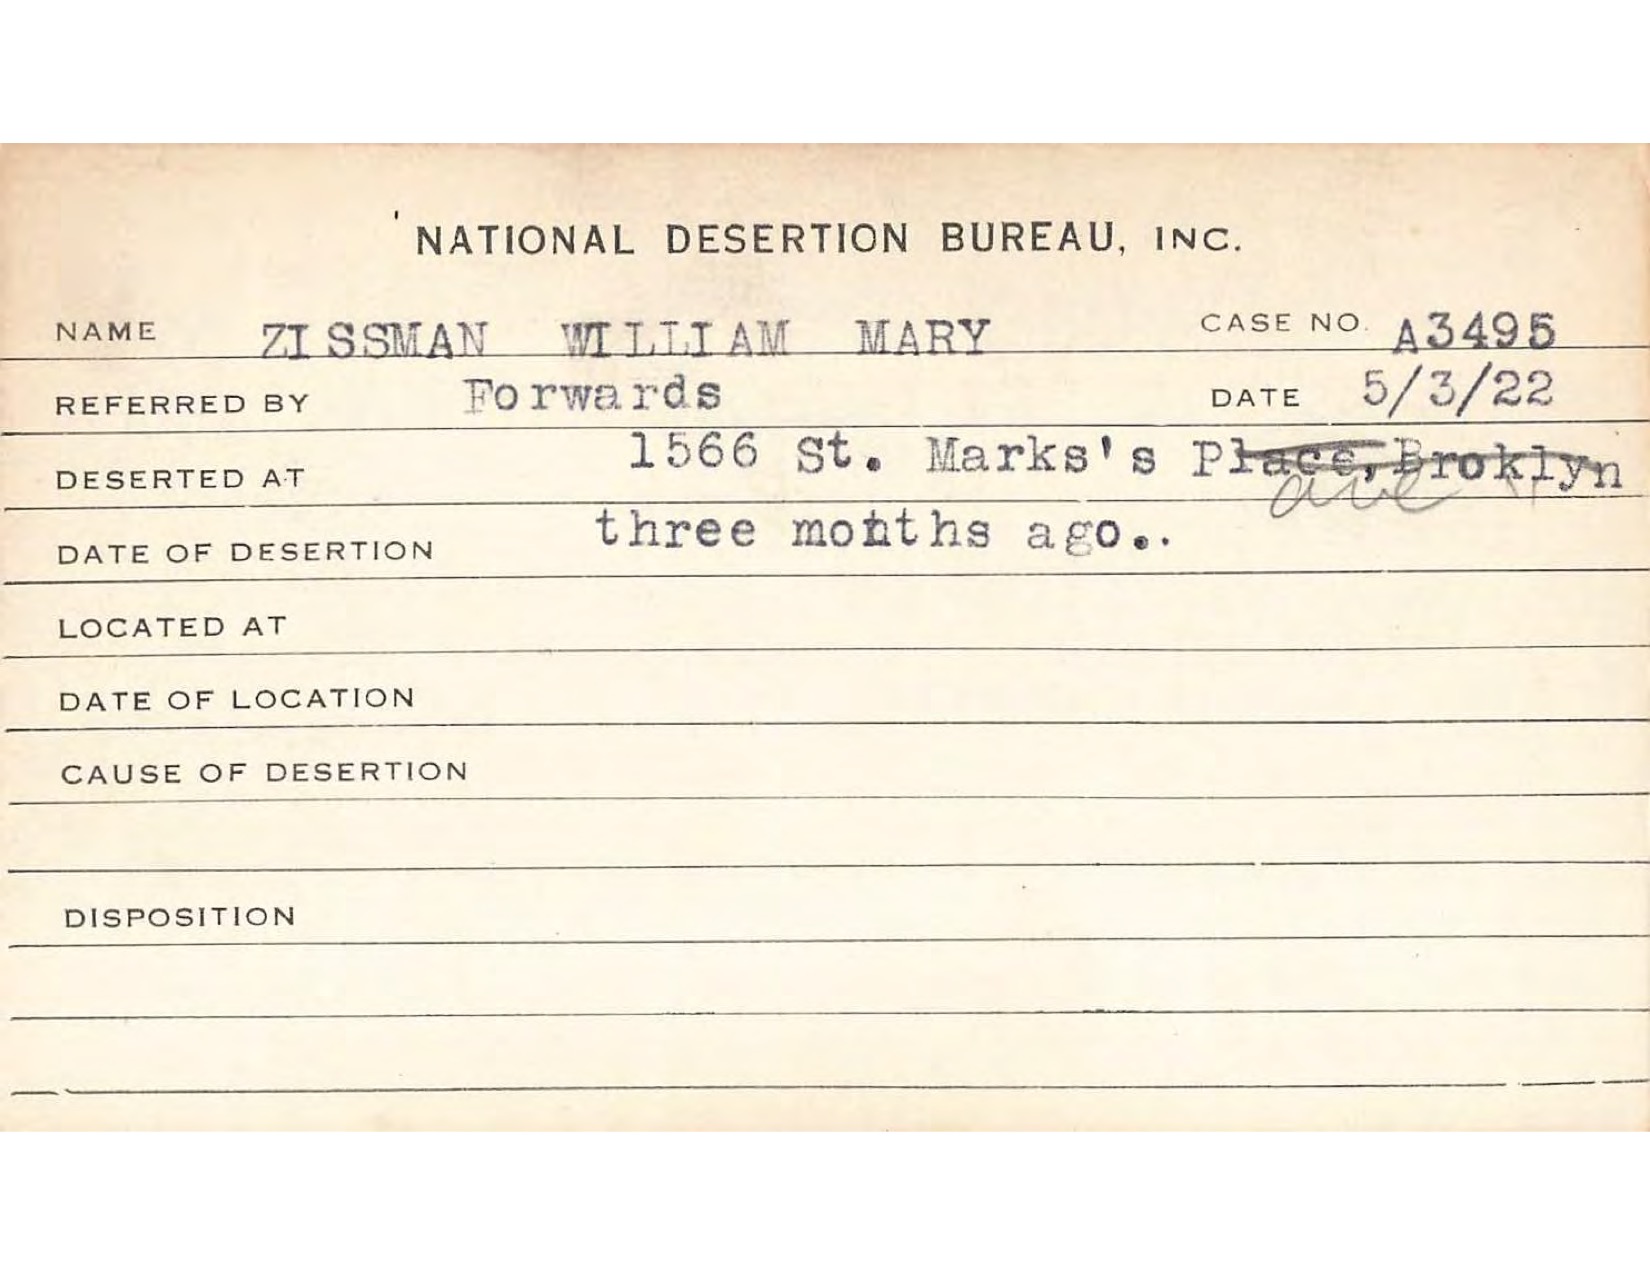 NATIONAL DESERTION BUREAU, INC.
NAME ZISSMAN WILLIAM MARY CASE NO. A3495
REFERRED BY Forwards DATE 5/3/22
DESERTED AT 1566 St. Marks's Place, Broklyn
ave
DATE OF DESERTION three months ago..
LOCATED AT
DATE OF LOCATION
CAUSE OF DESERTION
DISPOSITION